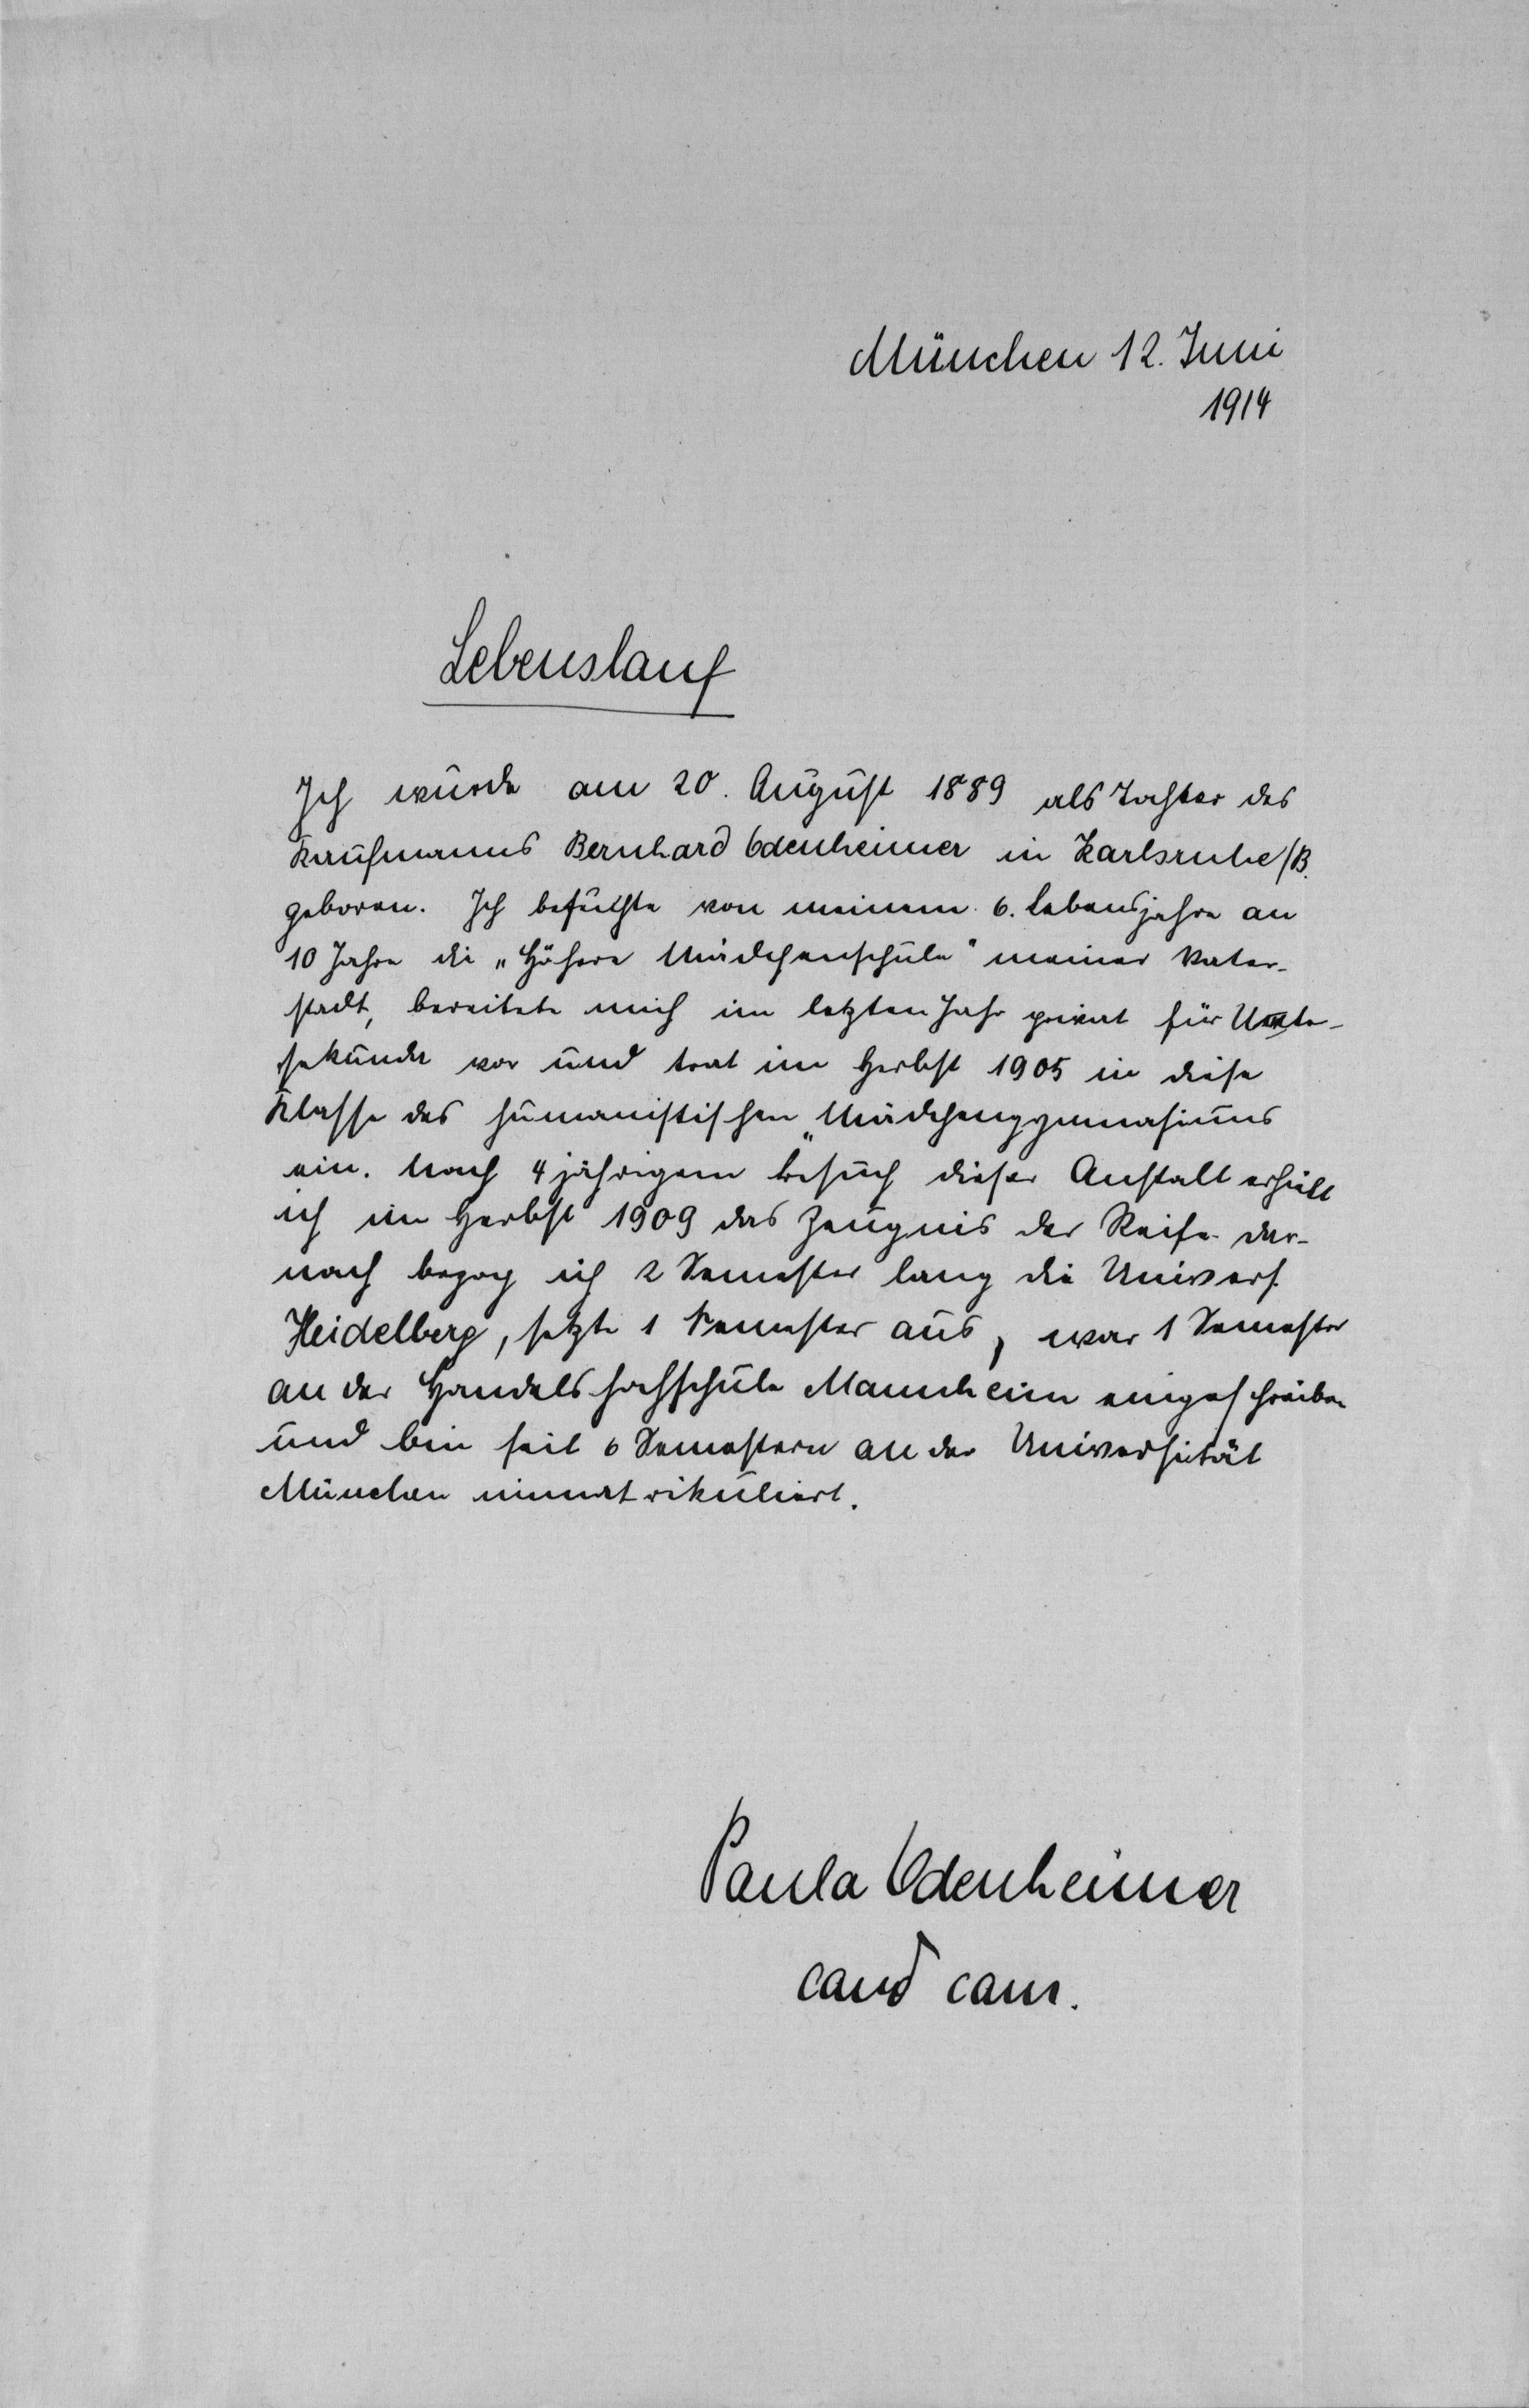 München 12. Juni
1914
Lebenslauf
Ich wurde am 20. August 1889 als Tochter des
Kaufmanns Bernhard Odenheimer in Karlsruhe/B.
geboren. Ich besuchte von meinem 6. Lebensjahre an
10 Jahre die „Höhere Mädchenschule" meiner Vater-
stadt, bereitete mich im letzten Jahr privat für Unter-
sekunda vor und trat im Herbst 1905 in diese
Klasse des humanistischen „Mädchengymnasiums
ein. Nach 4 jährigem Besuch dieser Anstalt erhielt
ich im Herbst 1909 das Zeugnis der Reife. Dar-
nach bezog ich 2 Semester lang die Univers.
Heidelberg, setzte 1 Semester aus, war 1 Semester
an der Handelshochschule Mannheim eingeschrieben
und bin seit 6 Semestern an der Universität
München immatrikuliert.
Paula Odenheimer
cand cam.